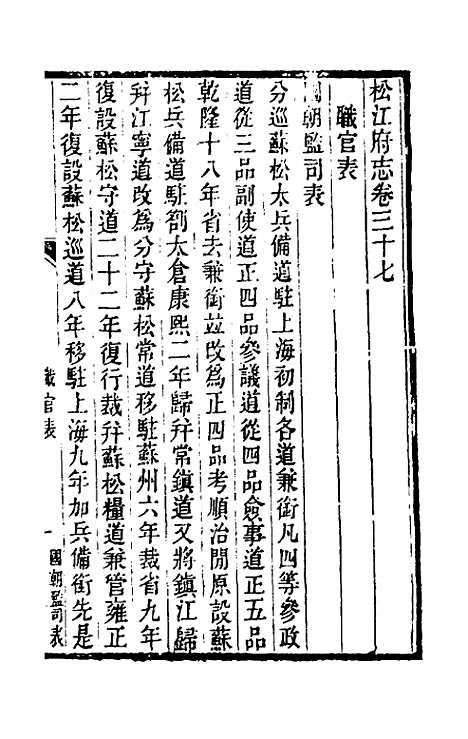 松江府志卷三十七
職官表
國朝監司表
分巡蘇松太兵備道駐上海初制各道兼銜凡四等參政
道從三品副使道正四品參議道從四品僉事道正五品
乾隆十八年省去兼銜竝改為正四品考順治閒原設蘇
松兵備道駐劄太倉康熙二年歸幷常鎮道又將鎮江歸
幷江寧道改為分守蘇松常道移駐蘇州六年裁省九年
復設蘇松守道二十二年復行裁幷蘇松糧道兼管雍正
二年復設蘇松巡道八年移駐上海九年加兵備銜先是
職官表
一
國朝監司表